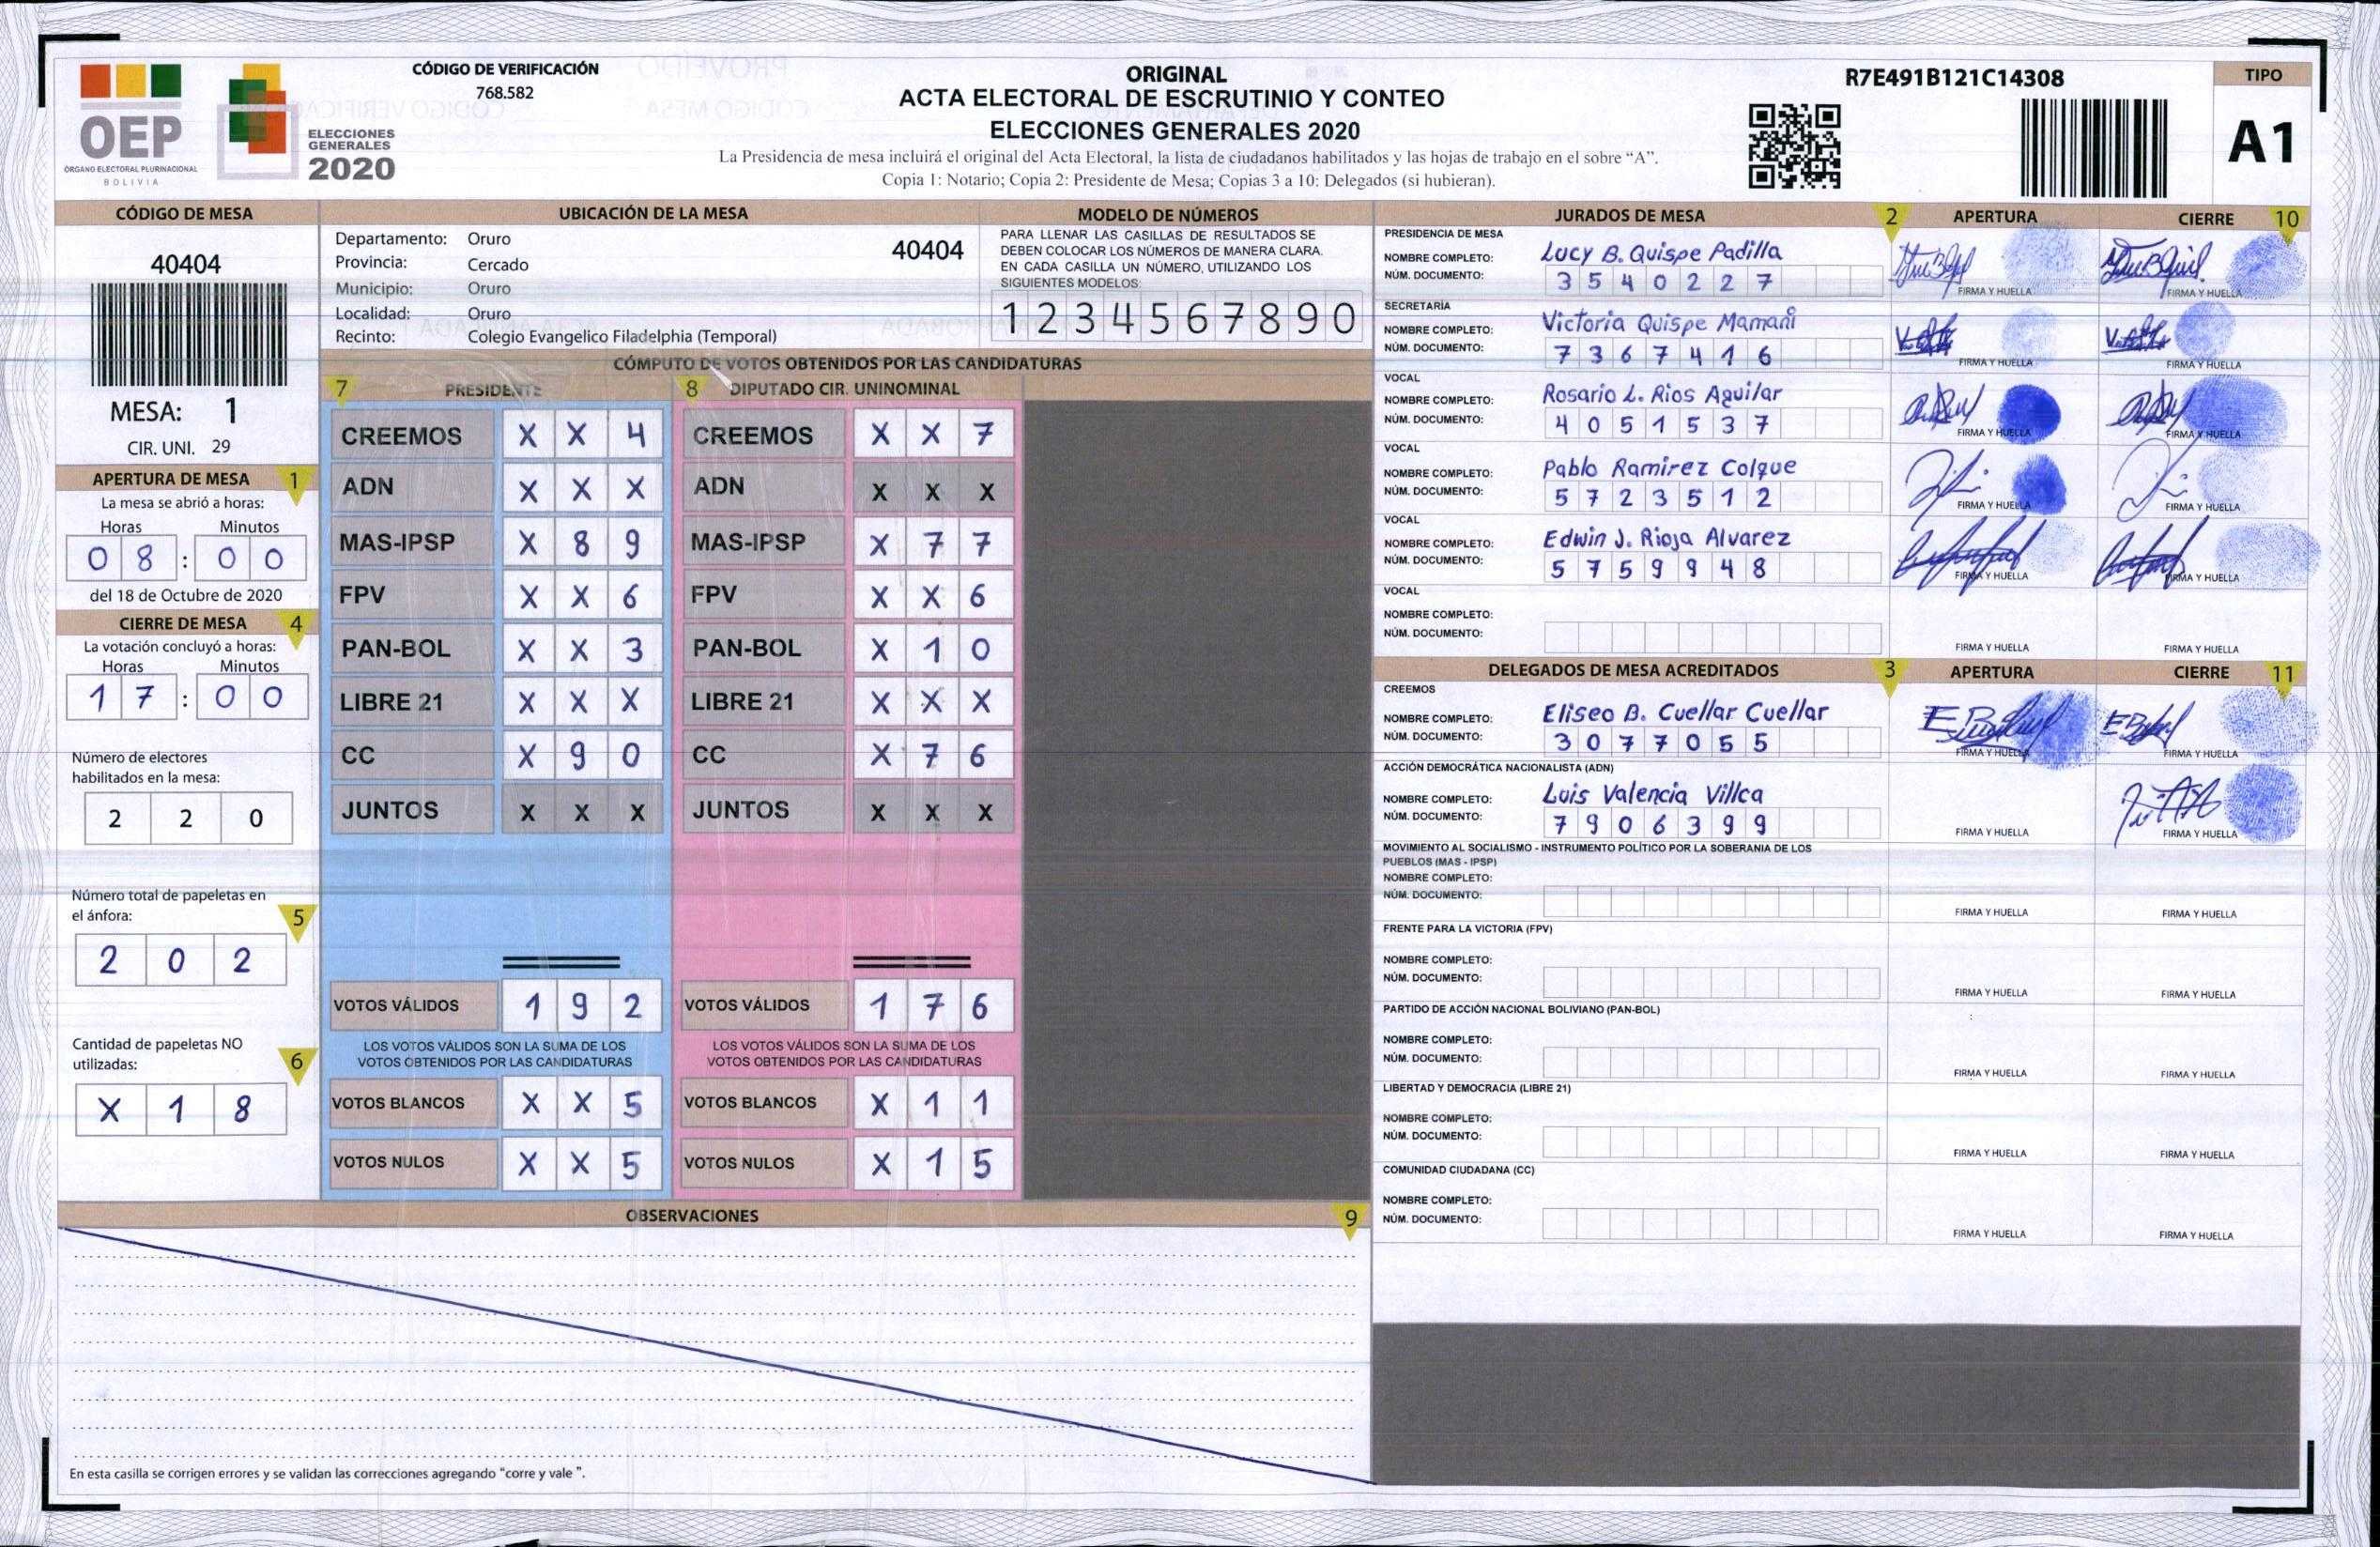 OEP
ÓRGANO ELECTORAL PLURINACIONAL
BOLIVIA
ELECCIONES
GENERALES
2020
CÓDIGO DE VERIFICACIÓN
768.582
ORIGINAL
ACTA ELECTORAL DE ESCRUTINIO Y CONTEO
ELECCIONES GENERALES 2020
La Presidencia de mesa incluirá el original del Acta Electoral, la lista de ciudadanos habilitados y las hojas de trabajo en el sobre “A”.
Copia 1: Notario; Copia 2: Presidente de Mesa; Copias 3 a 10: Delegados (si hubieran).
R7E491B121C14308
TIPO
A1
CÓDIGO DE MESA
40404
MESA: 1
CIR. UNI. 29
APERTURA DE MESA 1
La mesa se abrió a horas:
Horas Minutos
0 8 : 0 0
del 18 de Octubre de 2020
CIERRE DE MESA 4
La votación concluyó a horas:
Horas Minutos
1 7 : 0 0
Número de electores
habilitados en la mesa:
2 2 0
Número total de papeletas en
el ánfora: 5
2 0 2
Cantidad de papeletas NO
utilizadas: 6
X 1 8
UBICACIÓN DE LA MESA
Departamento: Oruro 40404
Provincia: Cercado
Municipio: Oruro
Localidad: Oruro
Recinto: Colegio Evangelico Filadelphia (Temporal)
MODELO DE NÚMEROS
PARA LLENAR LAS CASILLAS DE RESULTADOS SE
DEBEN COLOCAR LOS NÚMEROS DE MANERA CLARA.
EN CADA CASILLA UN NÚMERO, UTILIZANDO LOS
SIGUIENTES MODELOS:
1 2 3 4 5 6 7 8 9 0
CÓMPUTO DE VOTOS OBTENIDOS POR LAS CANDIDATURAS
7 PRESIDENTE 8 DIPUTADO CIR. UNINOMINAL
CREEMOS X X 4 CREEMOS X X 7
ADN X X X ADN X X X
MAS-IPSP X 8 9 MAS-IPSP X 7 7
FPV X X 6 FPV X X 6
PAN-BOL X X 3 PAN-BOL X 1 0
LIBRE 21 X X X LIBRE 21 X X X
CC X 9 0 CC X 7 6
JUNTOS X X X JUNTOS X X X
VOTOS VÁLIDOS 1 9 2 VOTOS VÁLIDOS 1 7 6
LOS VOTOS VÁLIDOS SON LA SUMA DE LOS LOS VOTOS VÁLIDOS SON LA SUMA DE LOS
VOTOS OBTENIDOS POR LAS CANDIDATURAS VOTOS OBTENIDOS POR LAS CANDIDATURAS
VOTOS BLANCOS X X 5 VOTOS BLANCOS X 1 1
VOTOS NULOS X X 5 VOTOS NULOS X 1 5
OBSERVACIONES 9
En esta casilla se corrigen errores y se validan las correcciones agregando “corre y vale ”.
JURADOS DE MESA 2 APERTURA CIERRE 10
PRESIDENCIA DE MESA
NOMBRE COMPLETO: Lucy B. Quispe Padilla
NÚM. DOCUMENTO: 3 5 4 0 2 2 7
FIRMA Y HUELLA FIRMA Y HUELLA
SECRETARÍA
NOMBRE COMPLETO: Victoria Quispe Mamani
NÚM. DOCUMENTO: 7 3 6 7 4 1 6
FIRMA Y HUELLA FIRMA Y HUELLA
VOCAL
NOMBRE COMPLETO: Rosario L. Rios Aguilar
NÚM. DOCUMENTO: 4 0 5 1 5 3 7
FIRMA Y HUELLA FIRMA Y HUELLA
VOCAL
NOMBRE COMPLETO: Pablo Ramirez Colque
NÚM. DOCUMENTO: 5 7 2 3 5 1 2
FIRMA Y HUELLA FIRMA Y HUELLA
VOCAL
NOMBRE COMPLETO: Edwin J. Rioja Alvarez
NÚM. DOCUMENTO: 5 7 5 9 9 4 8
FIRMA Y HUELLA FIRMA Y HUELLA
VOCAL
NOMBRE COMPLETO:
NÚM. DOCUMENTO:
FIRMA Y HUELLA FIRMA Y HUELLA
DELEGADOS DE MESA ACREDITADOS 3 APERTURA CIERRE 11
CREEMOS
NOMBRE COMPLETO: Eliseo B. Cuellar Cuellar
NÚM. DOCUMENTO: 3 0 7 7 0 5 5
FIRMA Y HUELLA FIRMA Y HUELLA
ACCIÓN DEMOCRÁTICA NACIONALISTA (ADN)
NOMBRE COMPLETO: Luis Valencia Villca
NÚM. DOCUMENTO: 7 9 0 6 3 9 9
FIRMA Y HUELLA FIRMA Y HUELLA
MOVIMIENTO AL SOCIALISMO - INSTRUMENTO POLÍTICO POR LA SOBERANIA DE LOS
PUEBLOS (MAS - IPSP)
NOMBRE COMPLETO:
NÚM. DOCUMENTO:
FIRMA Y HUELLA FIRMA Y HUELLA
FRENTE PARA LA VICTORIA (FPV)
NOMBRE COMPLETO:
NÚM. DOCUMENTO:
FIRMA Y HUELLA FIRMA Y HUELLA
PARTIDO DE ACCIÓN NACIONAL BOLIVIANO (PAN-BOL)
NOMBRE COMPLETO:
NÚM. DOCUMENTO:
FIRMA Y HUELLA FIRMA Y HUELLA
LIBERTAD Y DEMOCRACIA (LIBRE 21)
NOMBRE COMPLETO:
NÚM. DOCUMENTO:
FIRMA Y HUELLA FIRMA Y HUELLA
COMUNIDAD CIUDADANA (CC)
NOMBRE COMPLETO:
NÚM. DOCUMENTO:
FIRMA Y HUELLA FIRMA Y HUELLA